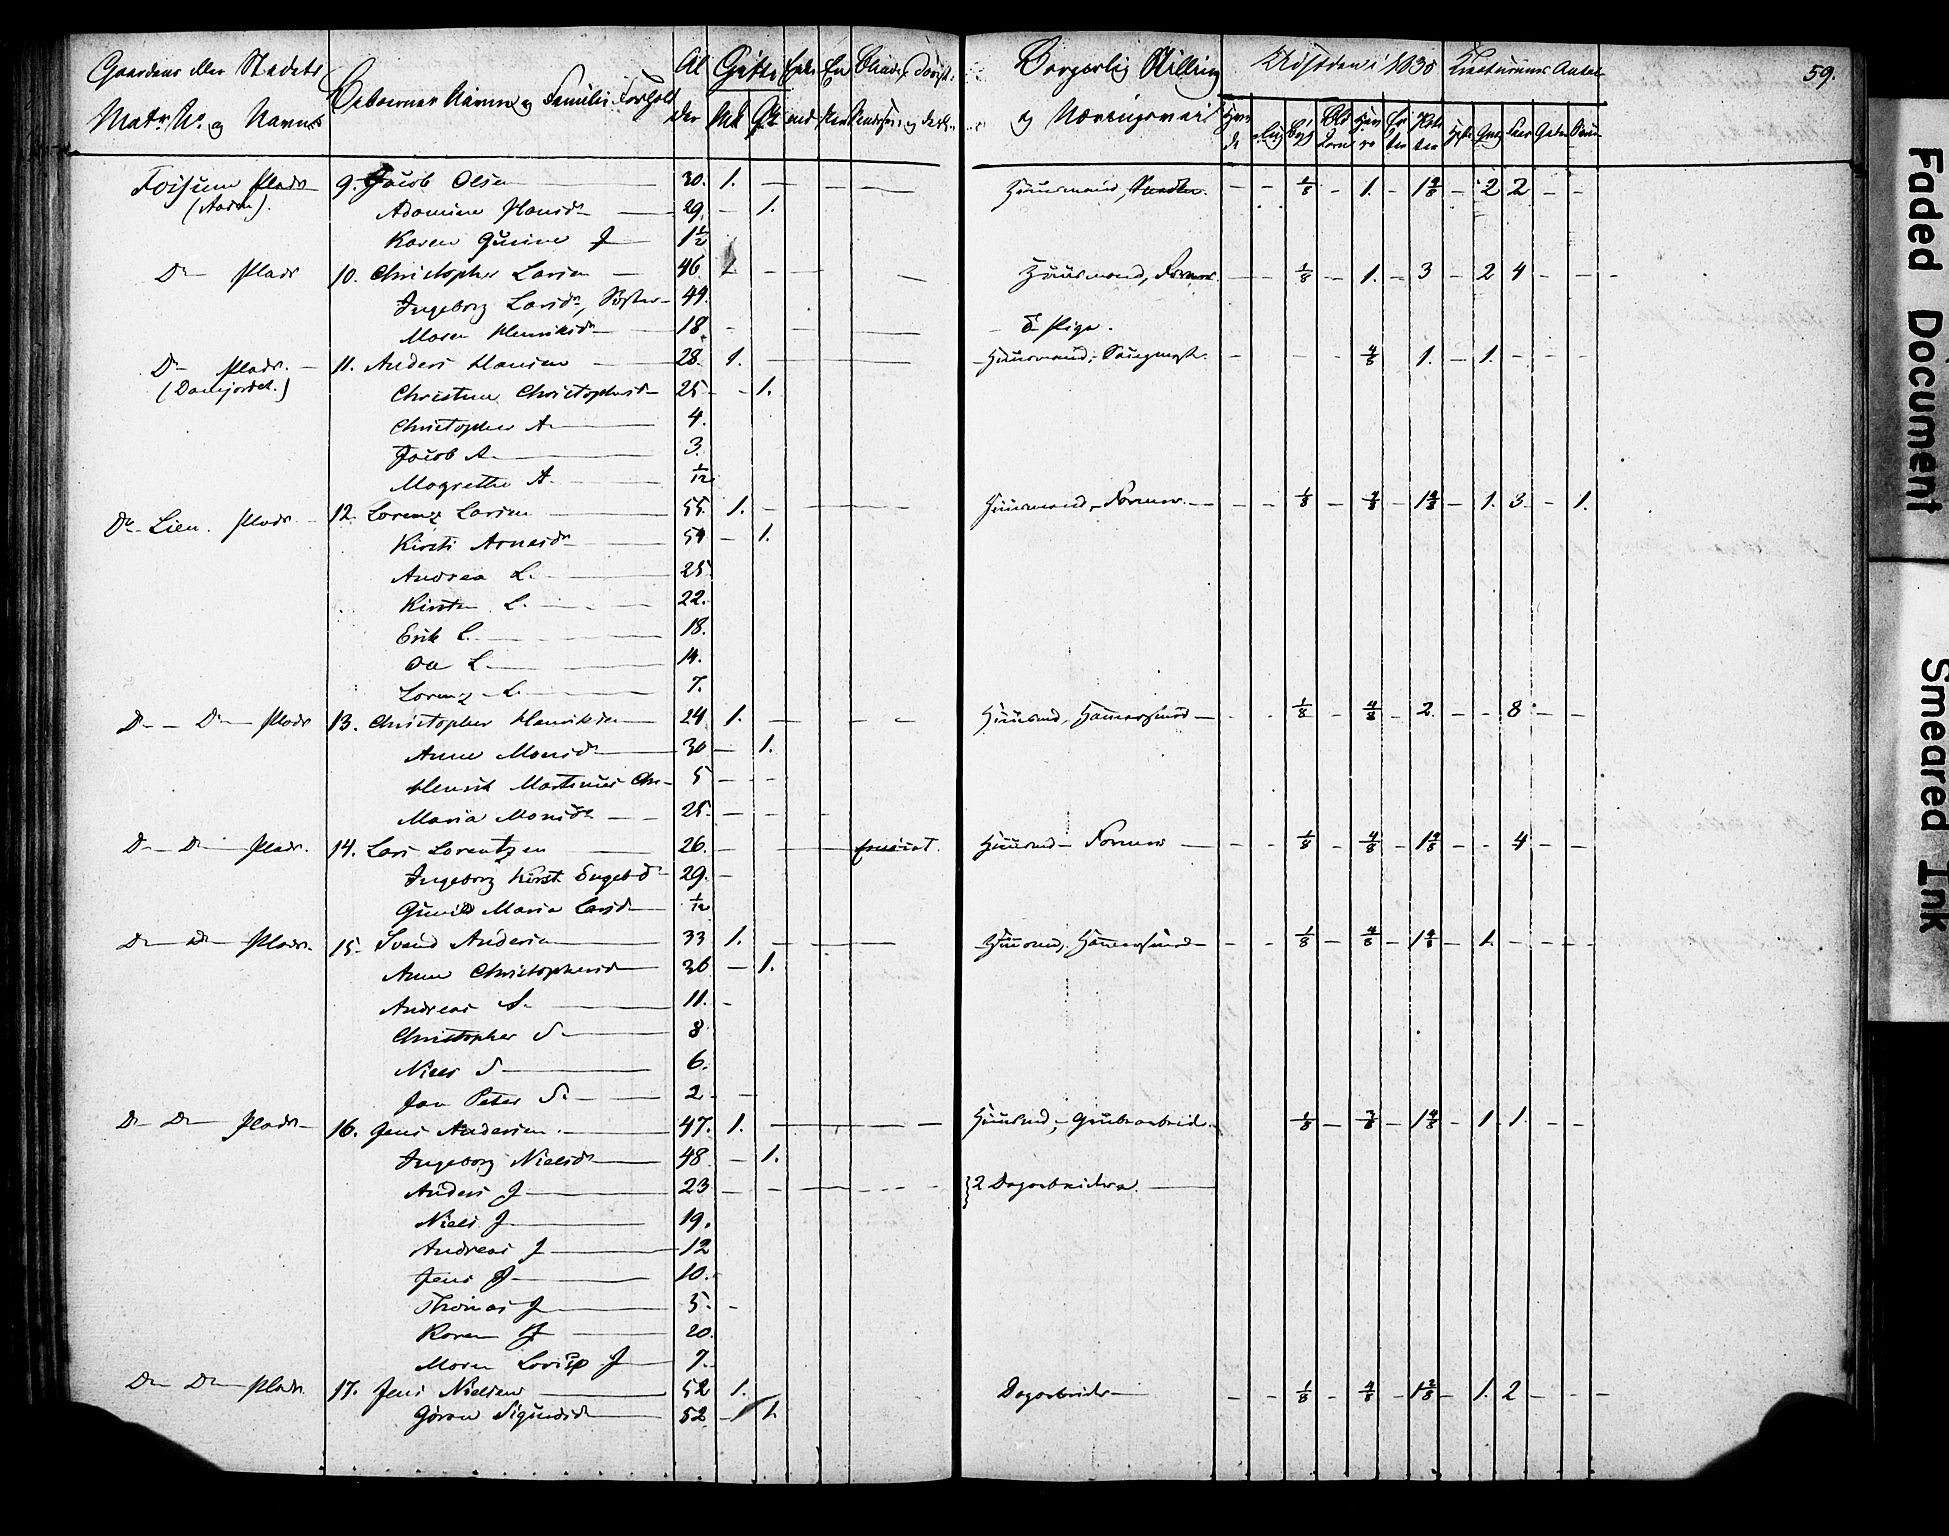 Gaardens eller Stedets Matr. No. og Navne
Beboernes Navne og Familie Forhold
Al der
Gifte Mk Qk
Borgerlig Stilling og Næringsveie
Udsæden i 1835
Kreaturenes Antal
59.
Fossum Plads 9. Jacob Olsen 30. 1. Huusmand, 1/8 1. 1 4/8 2 2
Adamine Hansd. 29. 1.
Karen Gurine J 1 1/2
Do Plads 10. Christopher Larsen 46 1 Huusmand, Former 1/8 1. 3 2 4
Ingeborg Larsd., Søster 44.
Maren Henriksd. 18 Do Pige.
Do Plads. 11. Anders Hansen 28. 1. Huusmand, 4/8 1. 1.
Christine Christophersd. 25 1.
Christopher A. 4.
Jacob A. 3.
Magrethe A. 1/12
Do Lien Plads 12. Lorenz Larsen 55. 1. Huusmand, Former. 1/8 1. 3 1.
Kirsti Arnesd. 54 1.
Andrea L. 25
Kirsten L. 22.
Erik L. 18.
Ole L. 14.
Lorenz L. 7.
Do Do Plads 13. Christopher Henriksen 24 1. Huusmd, Hammersmed 1/8 4/8 2. 8
Anne Monsd. 30 1.
Henrik Martinus Chr. 5
Maria Monsd. 25
Do Do Plads. 14. Lars Lorentzen 26. Huusmd Former 1/8 4/8 1 4/8 4
Ingeborg Kirst. Engeb.d. 29.
Gunild Maria Larsd. 1/12
Do Do Plads. 15. Svend Andersen 33 1. Huusmd, Hammersmed 1/8 4/8 1 4/8 1.
Anne Christophersd. 36 1.
Andreas S. 11.
Christopher S. 8
Niels S 6.
Jan Peter S. 2
Do Do Plads 16. Jens Andersen. 47. 1. Huusmd, Grubearbeid. 1/8 1 4/8 1 1.
Ingeborg Nielsd. 48 1.
Anders J 23 2 Dagarbeidere.
Niels J 19.
Andreas J 12
Jens J 10.
Thomas J 5.
Karen J 20.
Maren Lovise J 7.
Do Do Plads. 17. Jens Nielsen 52 1. Dagarbeider 1/8 4/8 1 2/8 1. 2
Gøran Sigurdsd. 52 1.
Faded Document
Smeared Ink